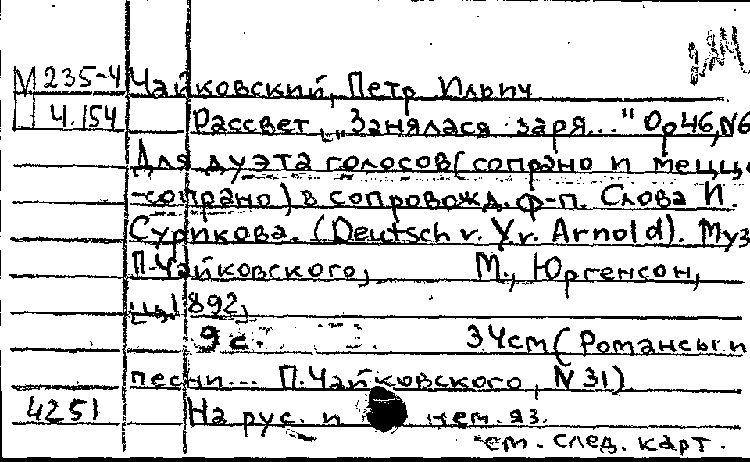 234
М 235-4 Чайковский, Петр Ильич
Ч. 154 Рассвет. „Занялася заря..." Ор 46, N6
Для дуэта голосов (сопрано и меццо
-сопрано) в сопровожд. ф-п. Слова И.
Сурикова. (Deutsch v. Yr. Arnold). Муз
П. Чайковского, М., Юргенсон,
ц. 1892,
9 с. 34см (Романсы и
песни... П. Чайковского, N 31)
4251 На рус. и нем. яз.
см. след. карт.